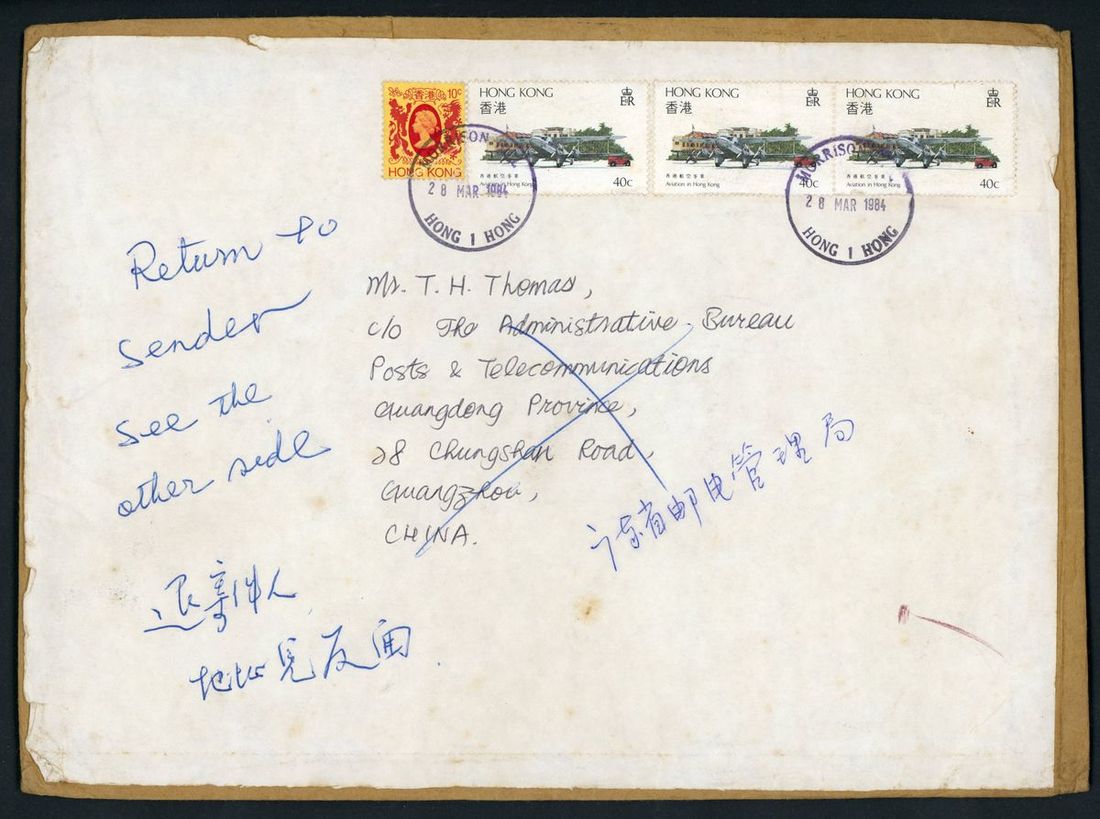 香港 10c
HONG KONG
HONG KONG
香港
E II R
香港航空事業
Aviation in Hong Kong
40c
HONG KONG
香港
E II R
香港航空事業
Aviation in Hong Kong
40c
HONG KONG
香港
E II R
香港航空事業
Aviation in Hong Kong
40c
MORRISON
28 MAR 1984
HONG 1 HONG
MORRISO
28 MAR 1984
HONG 1 HONG
Return to
Sender
See the
other side
Mr. T. H. Thomas,
c/o The Administrative Bureau
Posts & Telecommunications
Guangdong Province,
28 Chungshan Road,
Guangzhou,
CHINA.
广东省邮电管理局
退寄件人
地址见反面.